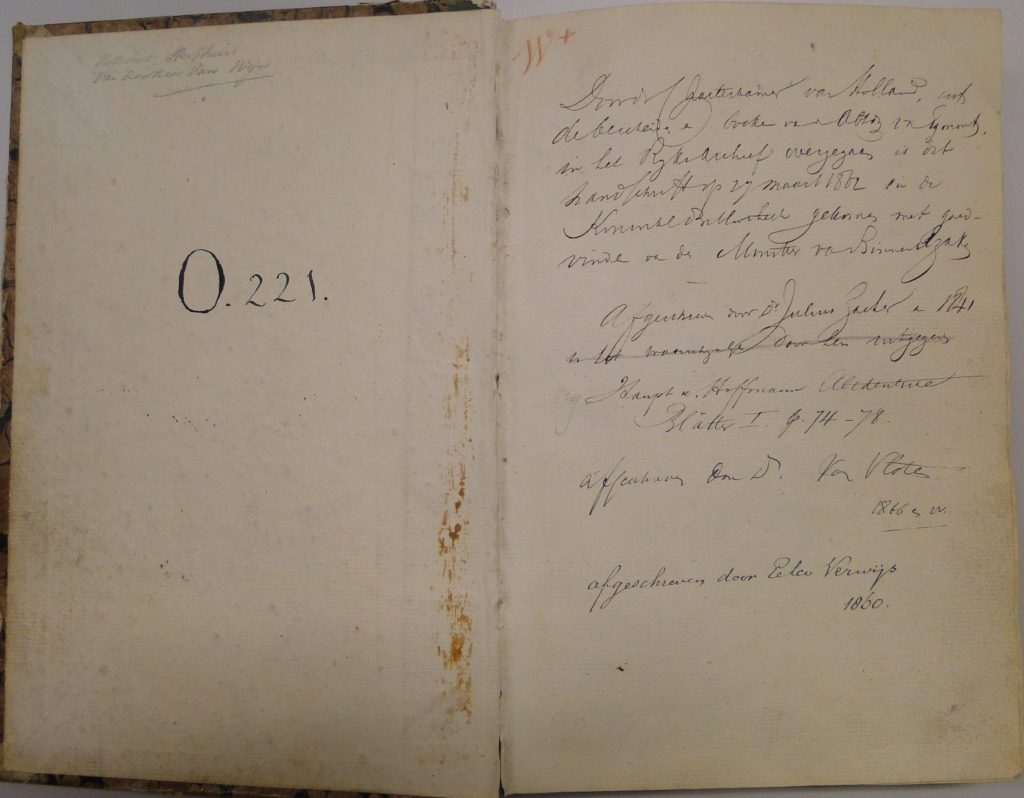 Van Wijn
O. 221.
W +
Door de ( Rekenkamer van Holland, uit
boeken van de Abdij van Egmond,
in het Rijks Archief overgegaan is dit
handschrift op 27 maart 1862 in de
Koninkl. Bibliotheek gekomen met goed-
vinden van den Minister van Binnenl. Zaken
Afgeschreven door Dr Julius Zacher in 1841
door den uitgegeven
Haupt u. Hoffmann Altdeutsche
Blätter I. p. 74-78.
afgeschreven door Dr. Van Vloten
1866
afgeschreven door Eelco Verwijs
1860.